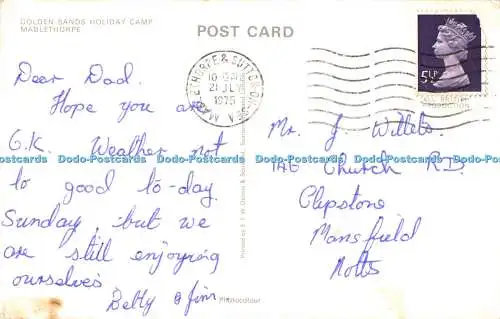 GOLDEN SANDS HOLIDAY CAMP
MABLETHORPE
POST CARD
MABLETHORPE & SUTTON-ON-SEA
21 JLY
1975
5½P
Dear Dad.
Hope you are
O.K. Weather not
to good to-day
Sunday, but we
are still enjoying
ourselves
Betty & Jim.
Mr. J Willets.
THE Church RD.
Clipstone
Mansfield
Notts
Photocolour
Dodo-Postcards Dodo-Postcards Dodo-Postcards Dodo-Postcards Dodo-Postcards Dodo-Postcards